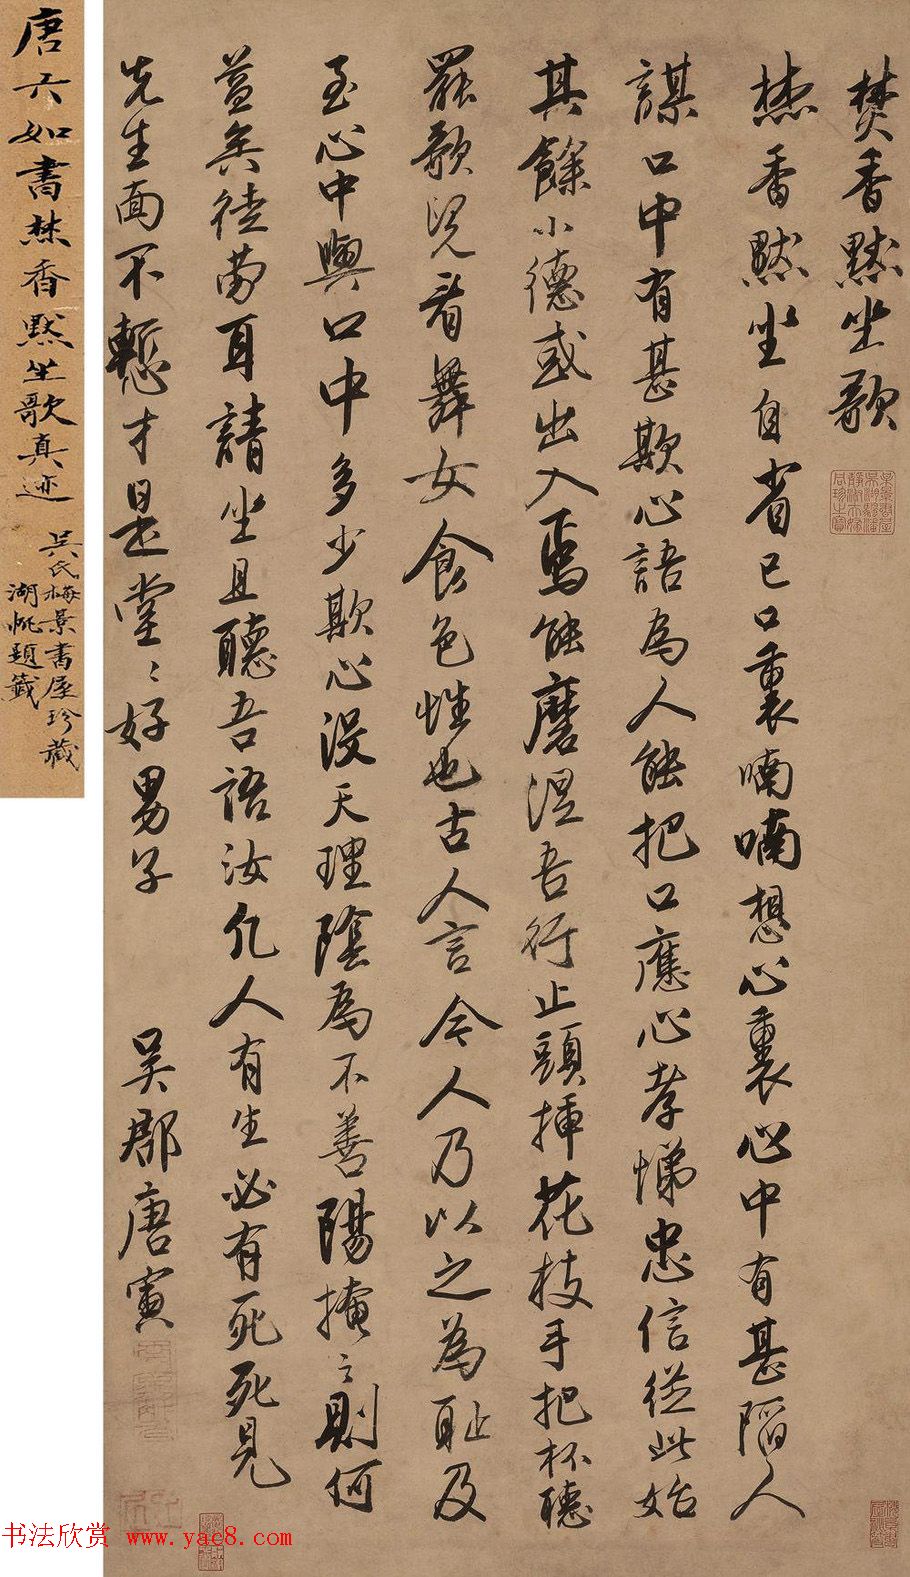 焚香默坐歌
焚香默坐自省己口裏喃喃想心裏心中有甚陷人
謀口中有甚欺心語為人能把口應心孝悌忠信從此始
其餘小德或出入焉能磨涅吾行止頭插花枝手把杯聽
罷歌兒看舞女食色性也古人言今人乃以之為耻及
至心中與口中多少欺心沒天理陰為不善陽掩之則何
益矣徒勞耳請坐且聽吾語汝凡人有生必有死死見
先生面不慙才是堂々好男子
吳郡唐寅
唐六如書焚香默坐歌真迹
吳氏梅景書屋珍藏
湖帆題籤
书法欣赏 www.yac8.com